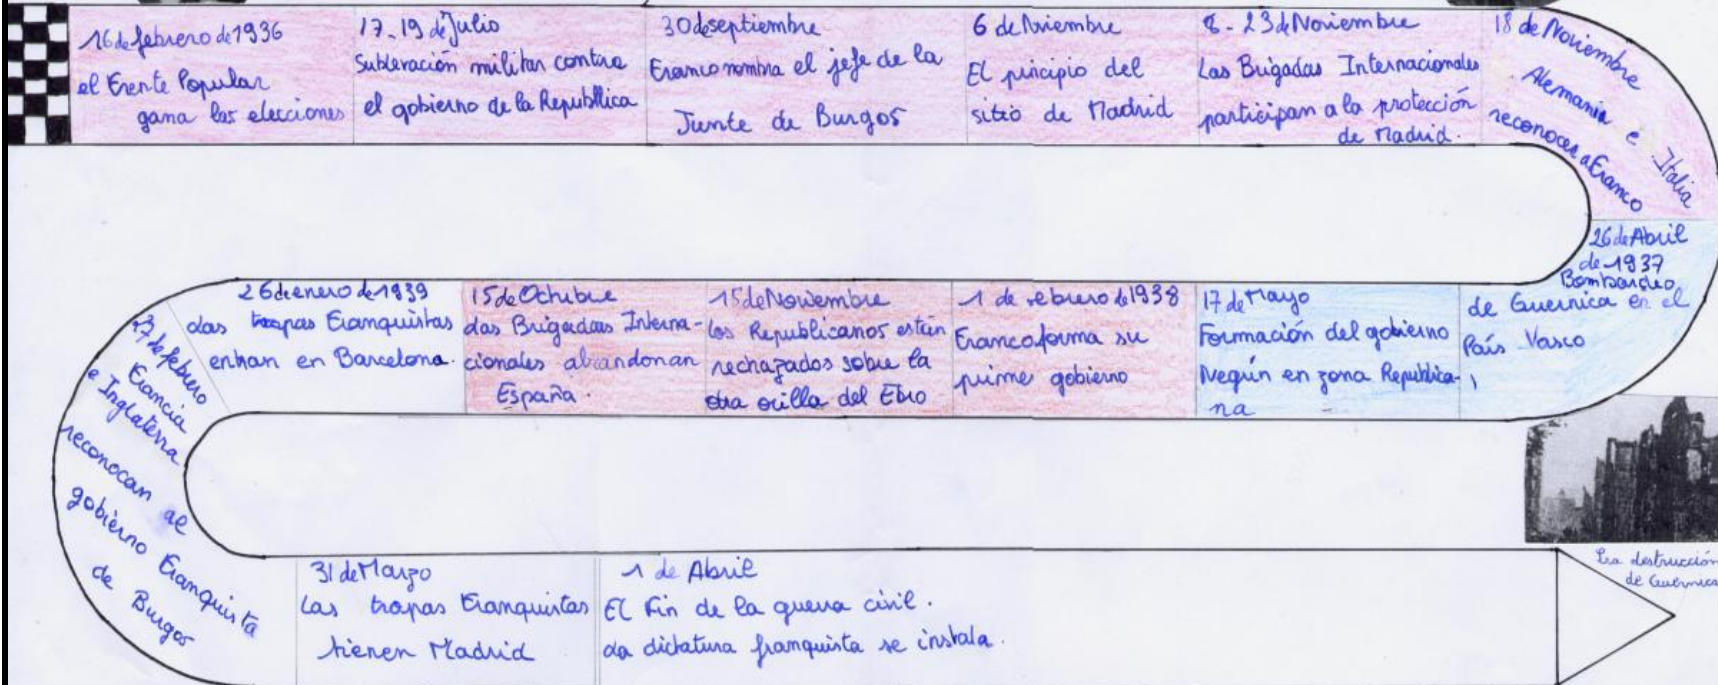 16 de febrero de 1936
el Frente Popular
gana las elecciones
17-19 de Julio
Subleración militar contra
el gobierno de la Republlica
30 de septiembre
Franco nombra el jefe de la
Junte de Burgos
6 de Noviembre
El principio del
sitio de Madrid
8-23 de Noviembre
Las Brigadas Internacionales
participan a la protección
de Madrid.
18 de Noviembre
Alemania e Italia
reconocen a Franco
26 de Abril
de 1937
Bombardeo
de Guernica en el
País Vasco
17 de Mayo
Formación del gobierno
Negrín en zona Republica-
na
1 de febrero de 1938
Franco forma su
primer gobierno
15 de Noviembre
los Republicanos están
rechazados sobre la
otra orilla del Ebro
15 de Octubre
Las Brigadas Interna-
cionales abandonan
España.
26 de enero de 1939
Las tropas Franquistas
entran en Barcelona.
27 de febrero
Francia
e Inglaterra
reconocan al
gobierno Franquista
de Burgos
31 de Marzo
Las tropas Franquistas
tienen Madrid
1 de Abril
El Fin de la guerra civil.
La dictatura franquista se instala.
La destrucción
de Guernica